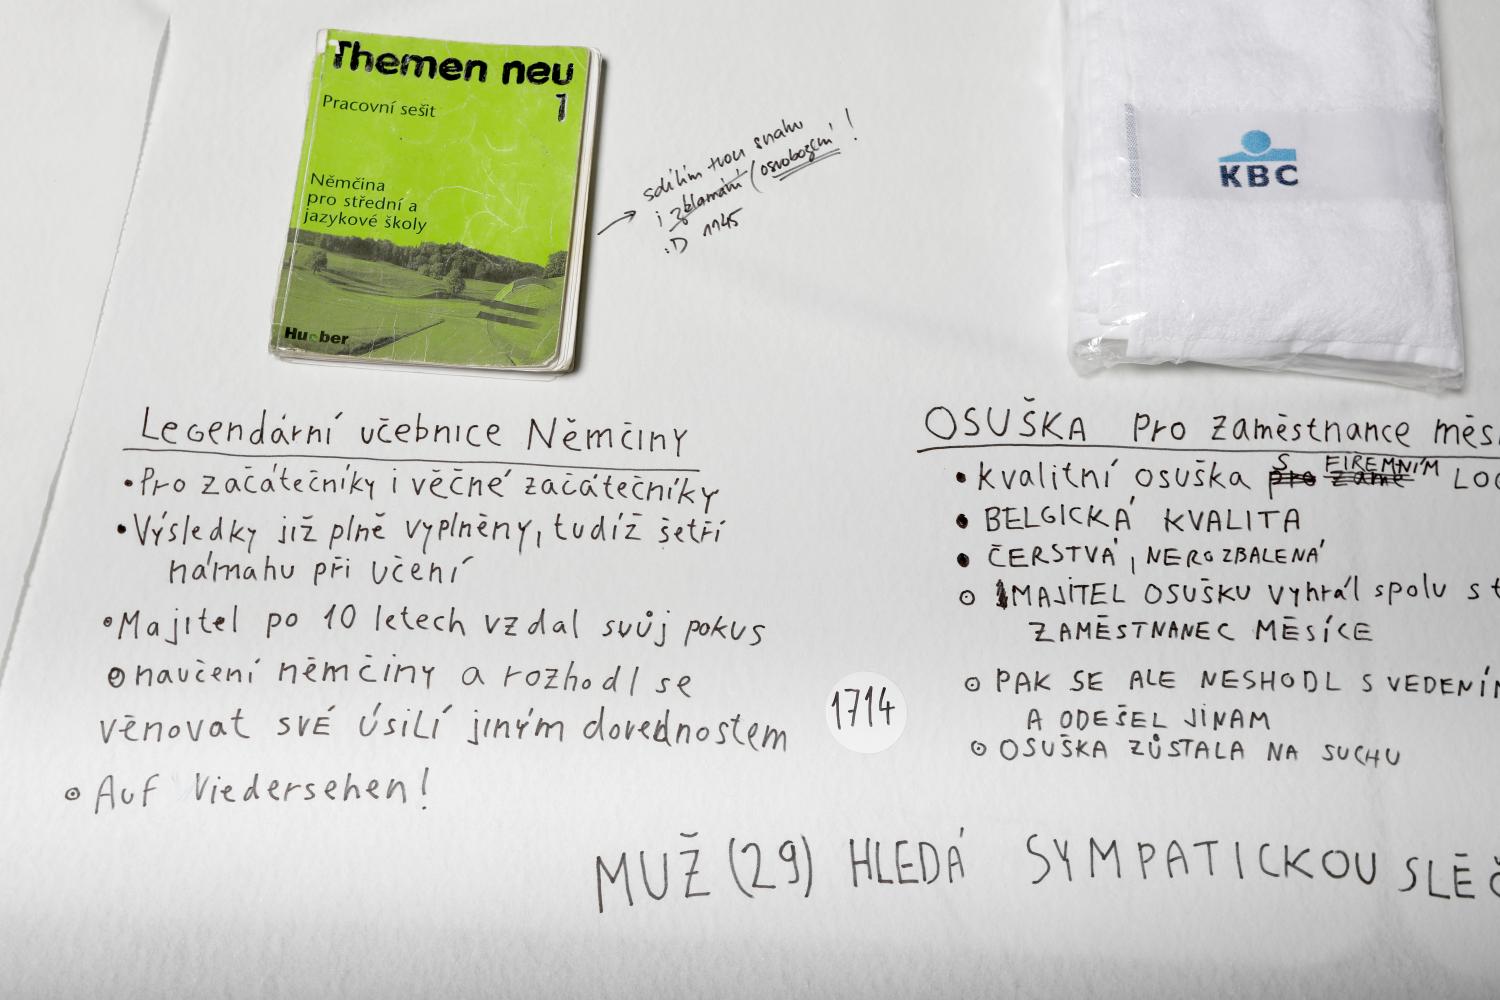 Themen neu
1
Pracovní sešit
Němčina
pro střední a
jazykové školy
Hueber
sdílím tvou snahu
i zklamání (osvobození!
:D 1145
KBC
Legendární učebnice Němčiny
• Pro začátečníky i věčné začátečníky
• Výsledky již plně vyplněny, tudíž šetří
námahu při učení
• Majitel po 10 letech vzdal svůj pokus
o naučení němčiny a rozhodl se
věnovat SVÉ úsilí jiným dovednostem
• Auf Viedersehen!
1714
OSUŠKA pro zaměstnance měs
• kvalitní osuška s FIREMNÍM LOG
• BELGICKÁ KVALITA
• ČERSTVÁ, NEROZBALENÁ
• MAJITEL OSUŠKU vyhrál spolu s t
ZAMĚSTNANEC MĚSÍCE
• PAK SE ALE NESHODL S VEDENÍM
A ODEŠEL JINAM
• OSUŠKA ZŮSTALA NA SUCHU
MUŽ (29) HLEDÁ SYMPATICKOU SLEČ